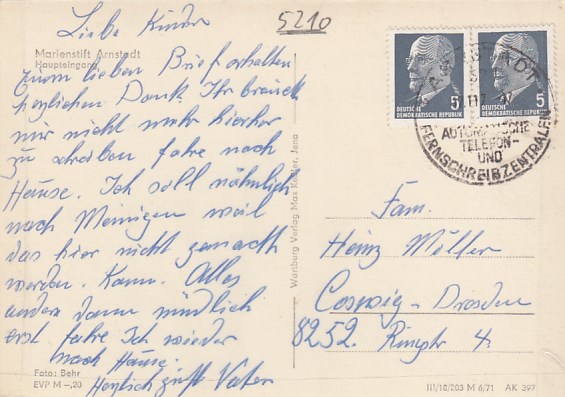 5210
Liebe Kinder
Marienstift Arnstadt
Haupteingang
zum lieben Brief erhalten
herzlichen Dank. Ihr braucht
mir nicht mehr hierher
zu schreiben fahre nach
Hause. Ich soll nähmlich
nach Meinigen weil
das hier nicht gemacht
werden. Kann. Alles
andere dann mündlich
erst fahre Ich wieder
nach Hause.
Herzlich grüßt Vater
Foto: Behr
EVP M –,20
Wartburg Verlag Max Keßler, Jena
DEUTSCHE
DEMOKRATISCHE REPUBLIK
5
DEUTSCHE
DEMOKRATISCHE REPUBLIK
5
AUTOMATISCHE
TELEFON-
UND
FERNSCHREIBZENTRALE
Fam.
Heinz Müller
Coswig - Dresden
8252. Ringstr 4
III/18/203 M 6/71 AK 397